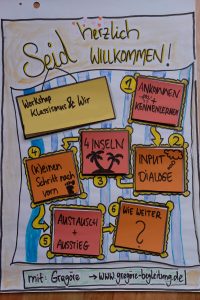 Seid herzlich
WILLKOMMEN!
Workshop
Klassismus & Wir
1
ANKOMMEN
+ KENNENLERNEN
2
INPUT
DIALOGE
3
4 INSELN
4
(K)einen
Schritt nach
vorn
5
AUSTAUSCH
+
AUSSTIEG
6
WIE WEITER
?
mit: Gregore → www.gregore-begleitung.de